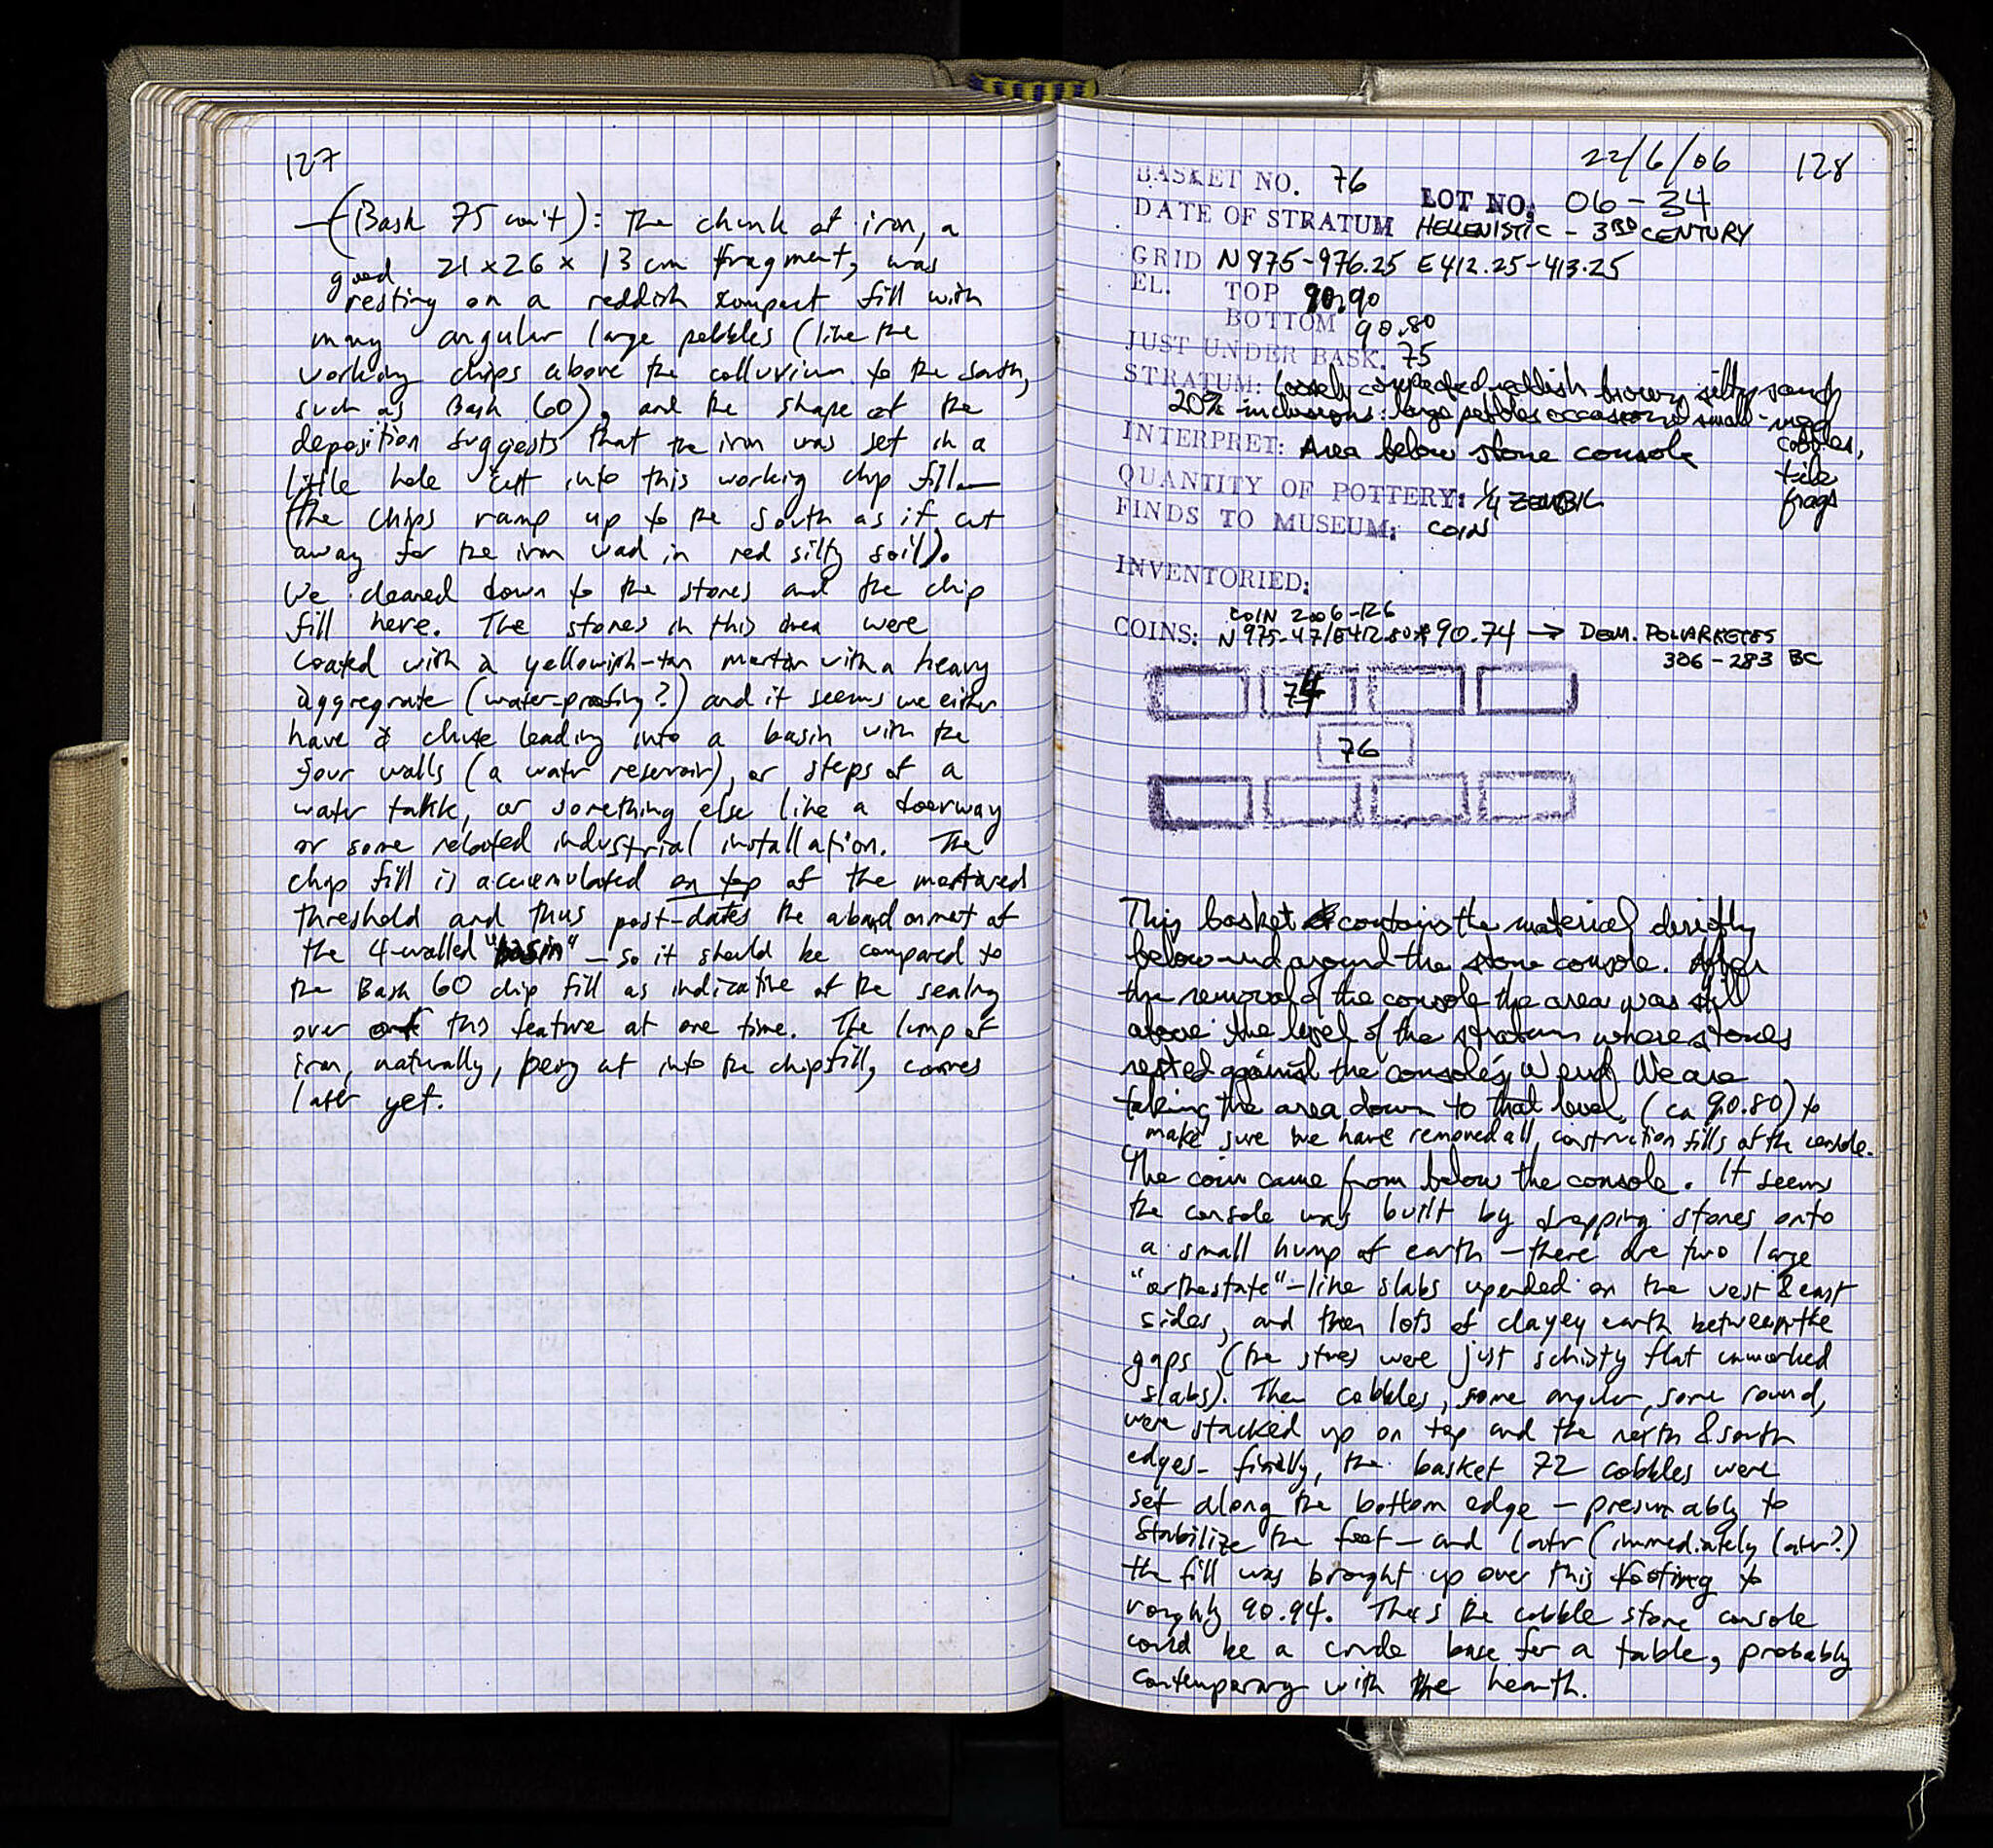 127
—(Bask 75 con't): The chunk of iron, a
good 21 x 26 x 13 cm fragment, was
resting on a reddish compact fill with
many angular large pebbles (like the
working chips above the colluvium to the south,
such as Bask 60), and the shape of the
deposition suggests that the iron was set in a
little hole cut into this working chip fill—
(the chips ramp up to the south as if cut
away for the iron and in red silty soil).
We cleared down to the stones and the chip
fill here. The stones in this area were
coated with a yellowish-tan mortar with a heavy
aggregrate (water-proofing?) and it seems we either
have a chute leading into a basin with the
four walls (a water reservoir), or steps of a
water tank, or something else like a doorway
or some related industrial installation. The
chip fill is accumulated on top of the mortared
threshold and thus post-dates the abandonment of
the 4-walled "basin" — so it should be compared to
the Bask 60 chip fill as indicative of the sealing
over of this feature at one time. The lump of
iron, naturally, being cut into the chip fill, comes
later yet.
22/6/06 128
BASKET NO. 76 LOT NO. 06-34
DATE OF STRATUM HELLENISTIC - 3RD CENTURY
GRID N975-976.25 E412.25-413.25
EL. TOP 90.90
BOTTOM 90.80
JUST UNDER BASK. 75
STRATUM: loosely compacted reddish brown silty sand
20% inclusions: large pebbles occasional small-med
cobbles,
INTERPRET: Area below stone console
tile
frags
QUANTITY OF POTTERY: 1/4 ZEMBIL
FINDS TO MUSEUM: COIN
INVENTORIED:
COIN 2006-126
COINS: N975.47/E412.80 * 90.74 → DEM. POLIARKETES
306-283 BC
74
76
This basket contains the material directly
below and around the stone console. After
the removal of the console the area was still
above the level of the stratum where stones
rested against the console's W end. We are
taking the area down to that level (ca 90.80) to
make sure we have removed all construction fills of the console.
The coin came from below the console. It seems
the console was built by dropping stones onto
a small hump of earth — there are two large
"orthostate"-like slabs upended on the west & east
sides, and then lots of clayey earth between the
gaps (the stones were just schisty flat unworked
slabs). Then cobbles, some angular, some round,
were stacked up on top and the north & south
edges - finally, the basket 72 cobbles were
set along the bottom edge — presumably to
stabilize the feet — and later (immediately later?)
the fill was brought up over this footing to
roughly 90.94. Thus the cobble stone console
could be a crude base for a table, probably
contemporary with the hearth.